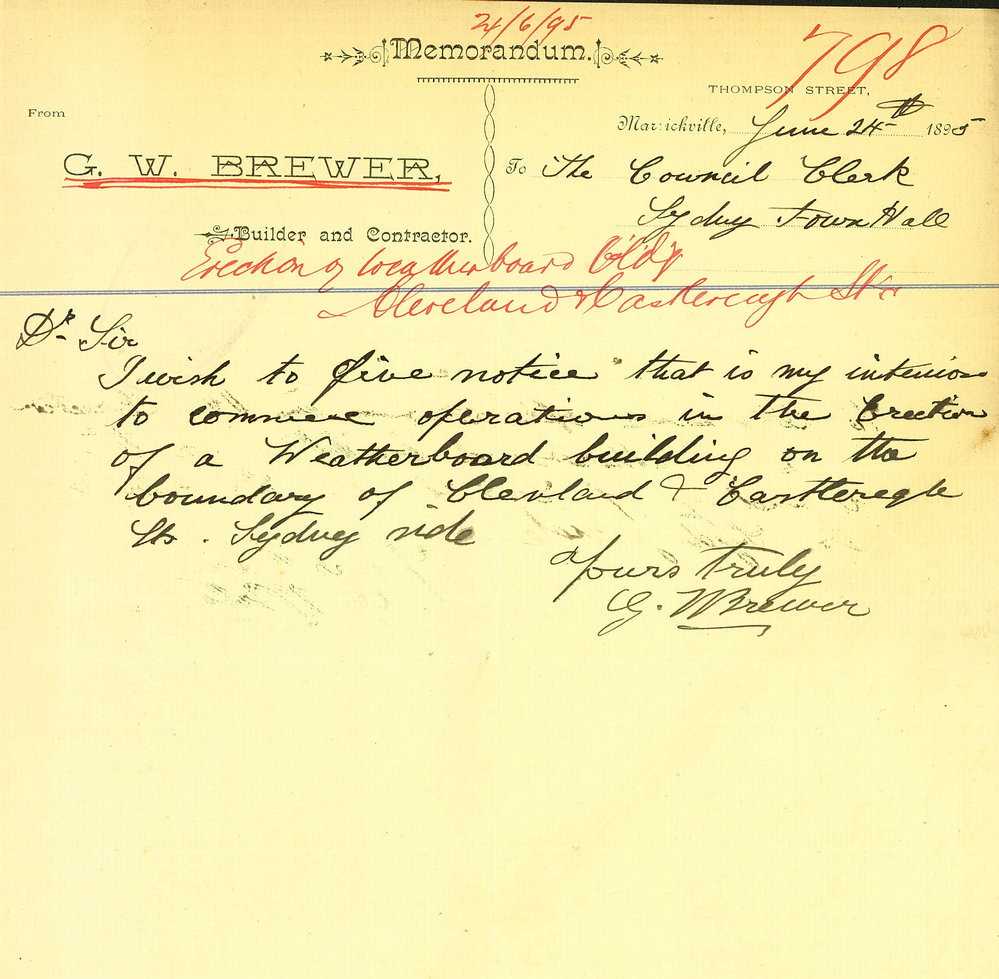 24/6/95
Memorandum.
798
THOMPSON STREET,
From
Marrickville, June 24th 1895
G. W. BREWER,
To The Council Clerk
Sydney Town Hall
Builder and Contractor.
Erection of weatherboard Bld'g
Cleveland & Castlereagh Sts
Dr Sir
I wish to give notice that is my intenion
to commence operations in the Erection
of a Weatherboard building on the
boundary of Clevland & Castleregh
Sts. Sydney side
Yours truly
G. W Brewer